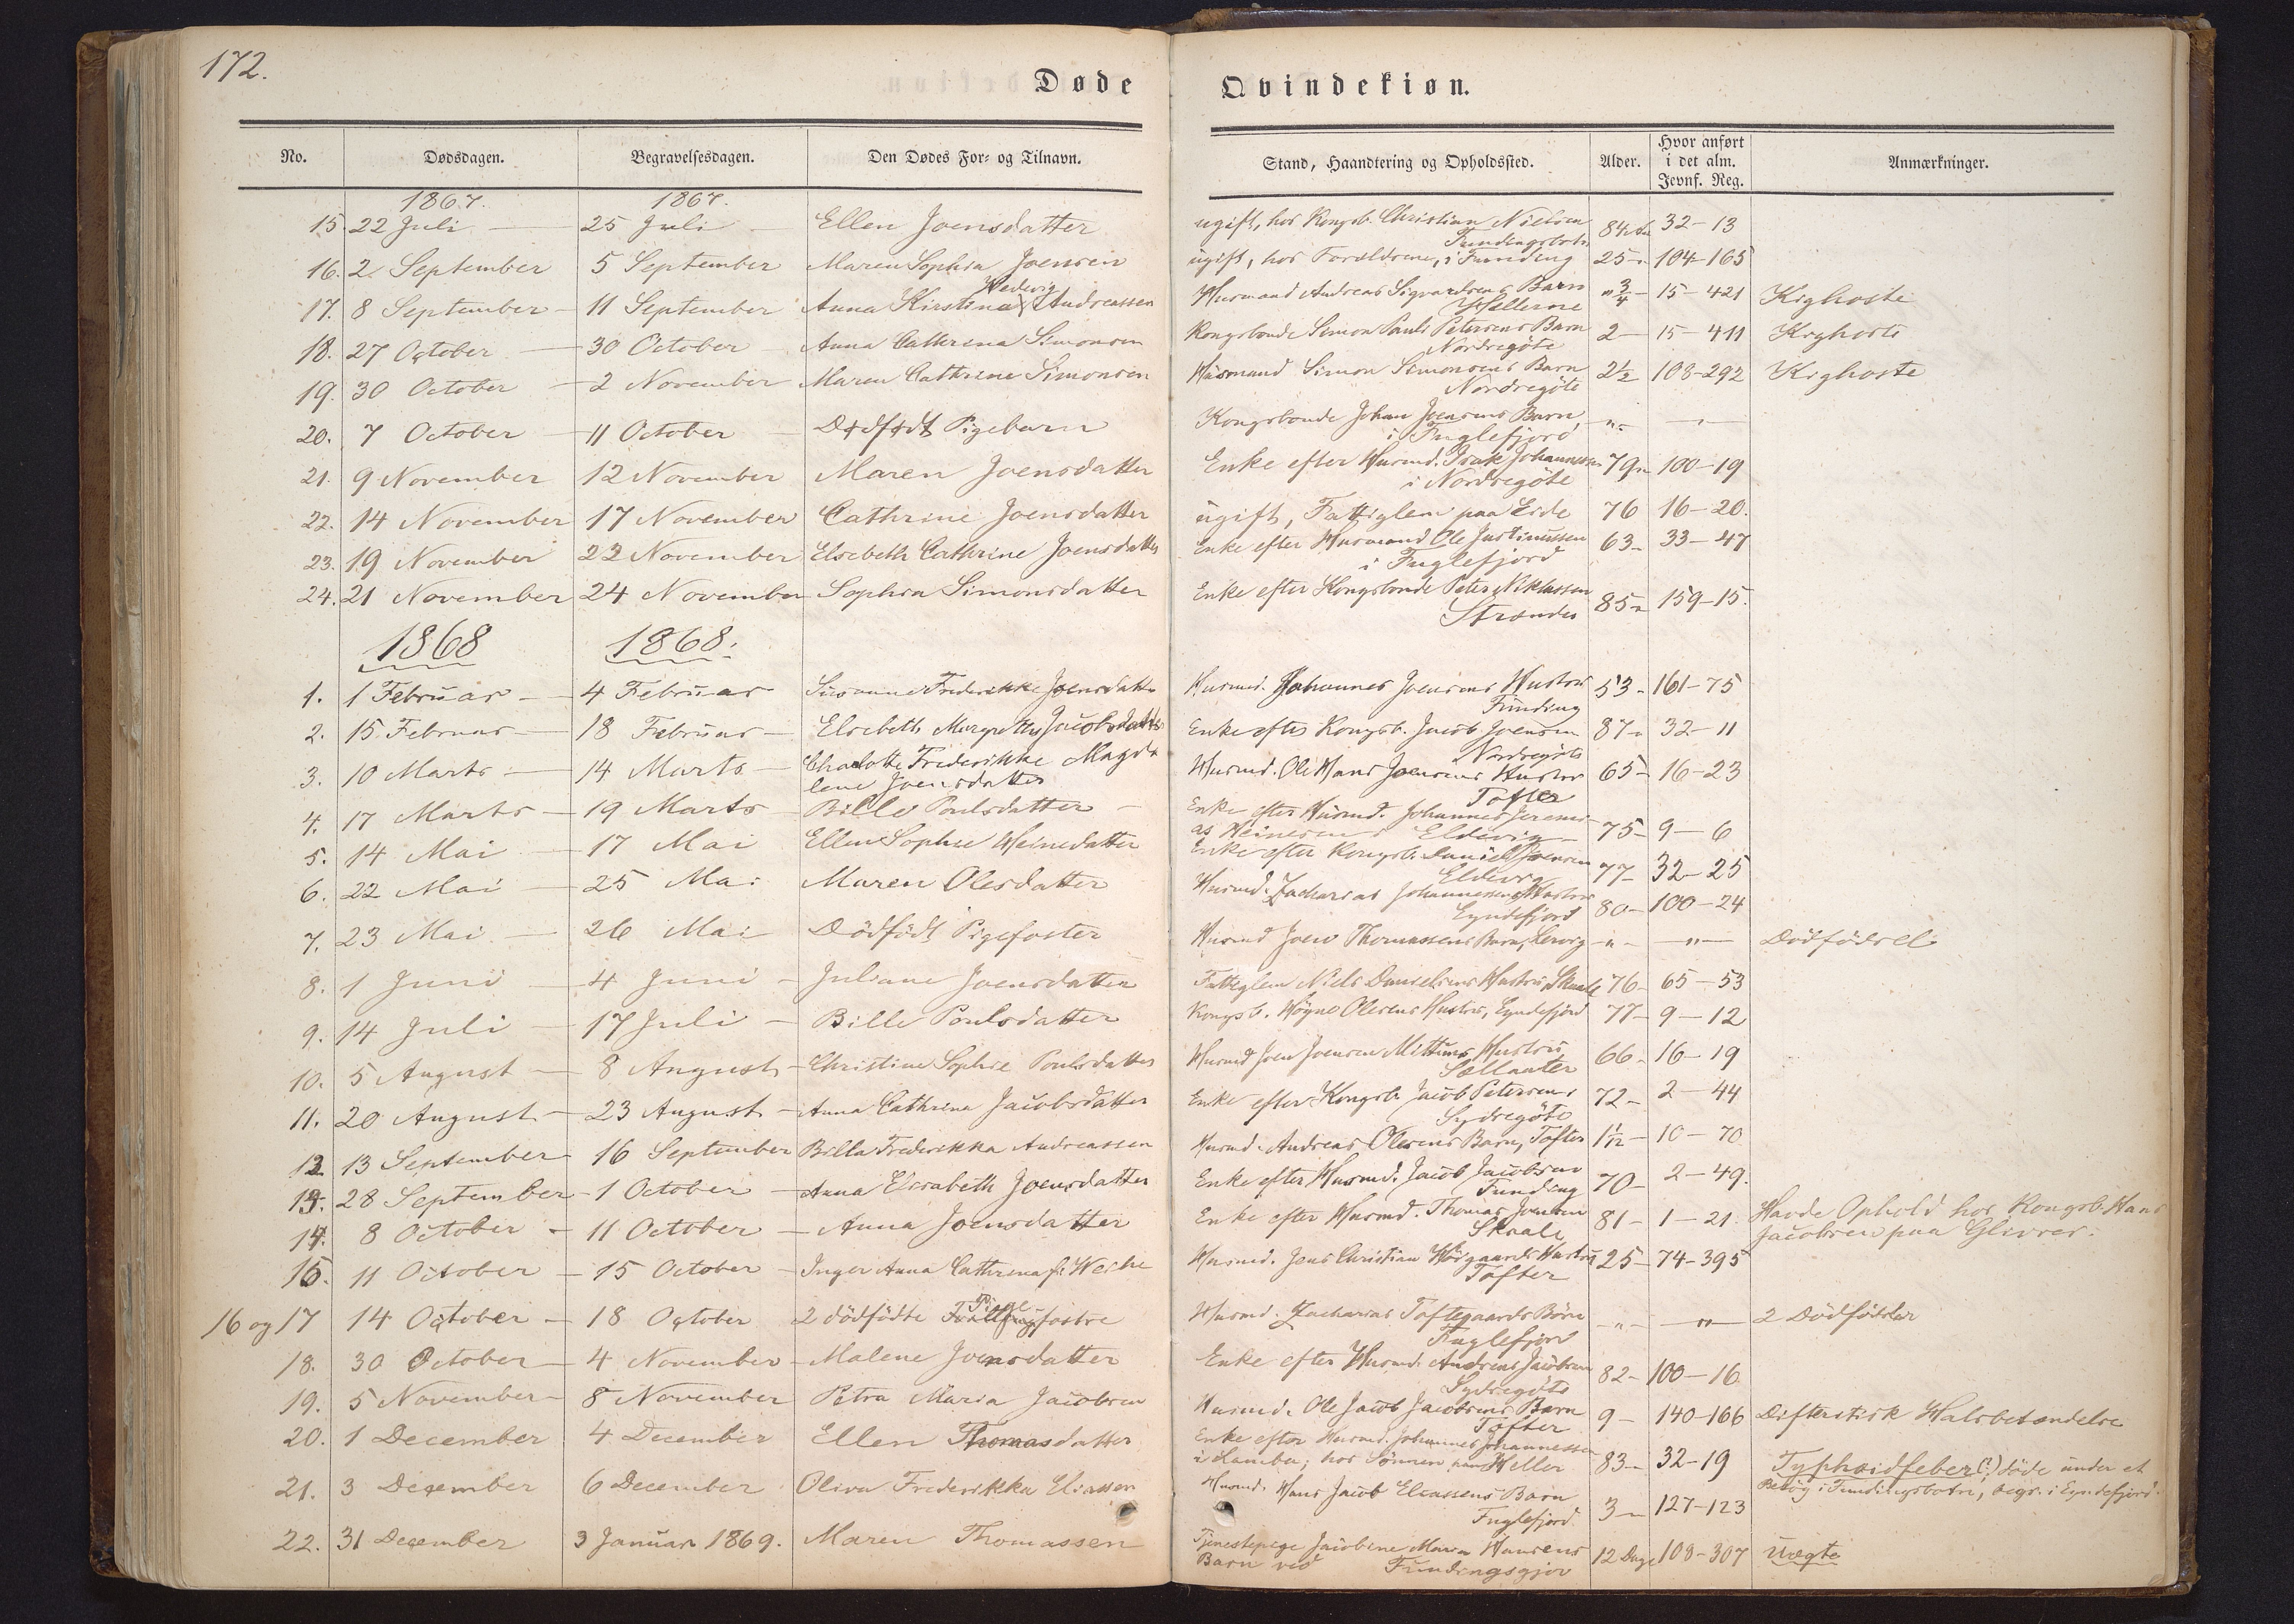 172.
Døde Qvindekiøn.
No. Dødsdagen. Begravelsesdagen. Den Dødes For- og Tilnavn. Stand, Haandtering og Opholdssted. Alder. Hvor anført i det alm. Jevnf. Reg. Anmærkninger.
1867. 1867.
15. 22 Juli 25 Juli Ellen Joensdatter ugift, hos Kongsb. Christian Nielsen 84 32-13
16. 2 September 5 September Maren Sophia Joensen ugift, hos Forældrene, i Funding 25 104-165
17. 8 September 11 September Anna Kirstina Hedevig Andreassen Husmand Andreas Sigvardsens Barn 3/4 15-421 Kighoste
18. 27 October 30 October Anna Cathrina Simonsen Kongsbonde Simon Pauli Petersens Barn Nordregöte 2 15-411 Kighoste
19. 30 October 2 November Maren Cathrine Simonsen Husmand Simon Simonsens Barn Nordregöte 2½ 108-292 Kighoste
20. 7 October 11 October Dødfødt Pigebarn Kongsbonde Johan Joensens Barn, i Fuglefjord " "
21. 9 November 12 November Maren Joensdatter Enke efter Husmd. Isak Johannessen i Nordregöte 79 100-19
22. 14 November 17 November Cathrine Joensdatter ugift, Fattiglem paa Eide 76 16-20.
23. 19 November 22 November Elsebeth Cathrine Joensdatter Enke efter Husmand Ole Justinussen i Fuglefjord 63 33-47
24. 21 November 24 November Sophia Simonsdatter Enke efter Kongsbonde Peter Niklassen Strænder 85 159-15.
1868 1868.
1. 1 Februar 4 Februar Susanne Frederikke Joensdatter Husmd. Johannes Joensens Hustru Funding 53 161-75
2. 15 Februar 18 Februar Elsebeth Margrethe Jacobsdatter Enke efter Kongsb. Jacob Joensen Nordregöte 87 32-11
3. 10 Marts 14 Marts Charlotte Frederikke Magda
lene Joensdatter Husmd. Ole Hans Joensens Hustru Tofter 65 16-23
4. 17 Marts 19 Marts Bille Poulsdatter Enke efter Husmd. Johannes Jeremi-
as Heinesen Eldevig 75 9-6
5. 14 Mai 17 Mai Ellen Sophie Heinesdatter Enke efter Kongsb. Daniel Joensen Eldevig 77 32-25
6. 22 Mai 25 Mai Maren Olesdatter Husmd. Zacharias Johannesens Hustru Eyndefjord 80 100-24
7. 23 Mai 26 Mai Dödfödt Pigefoster Husmd Joen Thomassens Barn, Lervig " " Dödfödsel
8. 1 Juni 4 Juni Juliane Joensdatter Fattiglem Niels Danielsens Hustru, Skaale 76 65-53
9. 14 Juli 17 Juli Bille Poulsdatter Kongsb. Högne Olesens Hustru, Eyndefjord 77 9-12
10. 5 August 8 August Christine Sophie Poulsdatter Husmd Joen Joensen Hustru 66 16-19
11. 20 August 23 August Anna Cathrina Jacobsdatter Enke efter Kongsb. Jacob Petersens Sydregöte 72 2-44
12. 13 September 16 September Billa Frederikka Andreassen Husmd. Andreas Olesens Barn, Tofter 1/12 10-70
13. 28 September 1 October Anna Elisabeth Joensdatter Enke efter Husmd. Jacob Jacobsen Funding 70 2-49.
14. 8 October 11 October Anna Joensdatter Enke efter Husmd. Thomas Joensen Skaale 81 1-21. Havde Ophold hos Kongsb. Hans
Jacobsen paa Glivrer.
15. 11 October 15 October Inger Anna Cathrina f. Weihe Husmd. Jens Christian Höigaards Hustru Tofter 25 74-395
16 og 17 14 October 18 October 2 dödfödte Pige fostre Husmd. Zacharias Toftegaards Börn Fuglefjord " " 2 Dödfödsler
18. 30 October 4 November Malene Joensdatter Enke efter Husmd. Andreas Jacobsen Sydregöte 82 100-16
19. 5 November 8 November Petra Maria Jacobsen Husmd. Ole Jacob Jacobsens Barn Tofter 9 140-166 Difteritisk Halsbetændelse
20. 1 December 4 December Ellen Thomasdatter Enke efter Husmd. Johannes Johannessen
i Lamba; hos Sönnen paa Heller 83 32-19 Typhoidfeber (?) döde under et
21. 3 December 6 December Oliva Frederikka Eliassen Husmd. Hans Jacob Eliassens Barn Fuglefjord 3 127-123 Besög i Fundingsbotn, begr. i Eyndefjord.
22. 31 December 3 Januar 1869. Maren Thomassen Tjenestepige Jacobine Maria Hansens
Barn ved Fundingsgjov 12 Dage 108-307 Uægte